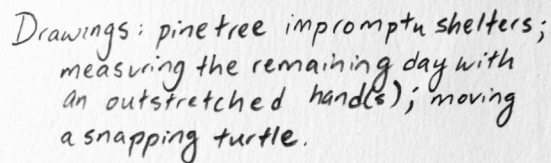 Drawings: pine tree impromptu shelters;
measuring the remaining day with
an outstretched hand(s); moving
a snapping turtle.